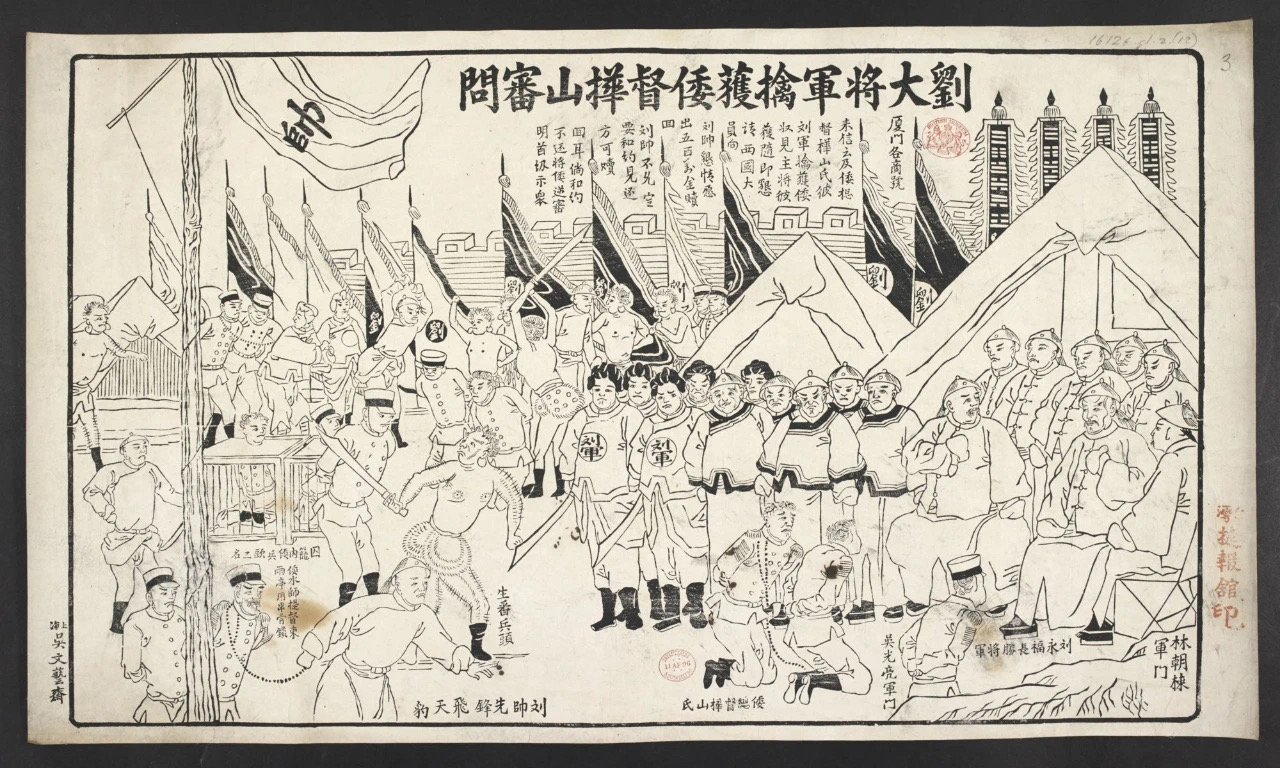 劉大将軍擒獲倭督樺山審問
厦门各商號
来信云及倭總
督樺山氏彼
刘軍擒獲倭
奴見主将彼
獲随即懇
请西國大
員向
刘帥懇情愿
出五百万金贖
回
刘帥不允定
要和约見还
方可贖
回耳倘和约
不还将倭逆審
明首圾示衆
帥
劉
劉
劉
劉
劉
刘軍
刘軍
林朝棟
軍门
刘永福長勝将軍
吴光亮軍门
倭總督樺山氏
生番兵頭
刘帥先鋒飛天豹
囚籠内倭兵頭二名
倭水師提督東
上海吴文藝齋
灣捷報舘印
3